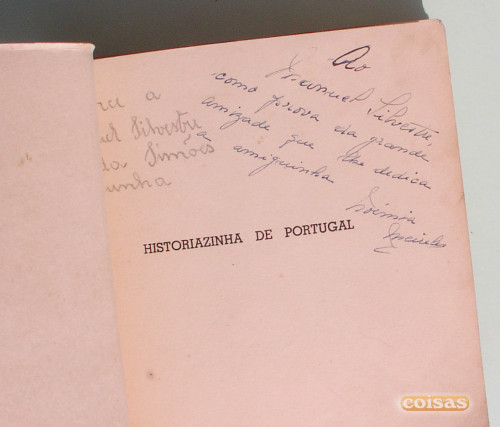 Ao
Manuel Silvestre,
como prova da grande
amizade que lhe dedica
a amiguinha
a
Silvestre
Simões
HISTORIAZINHA DE PORTUGAL
coisas